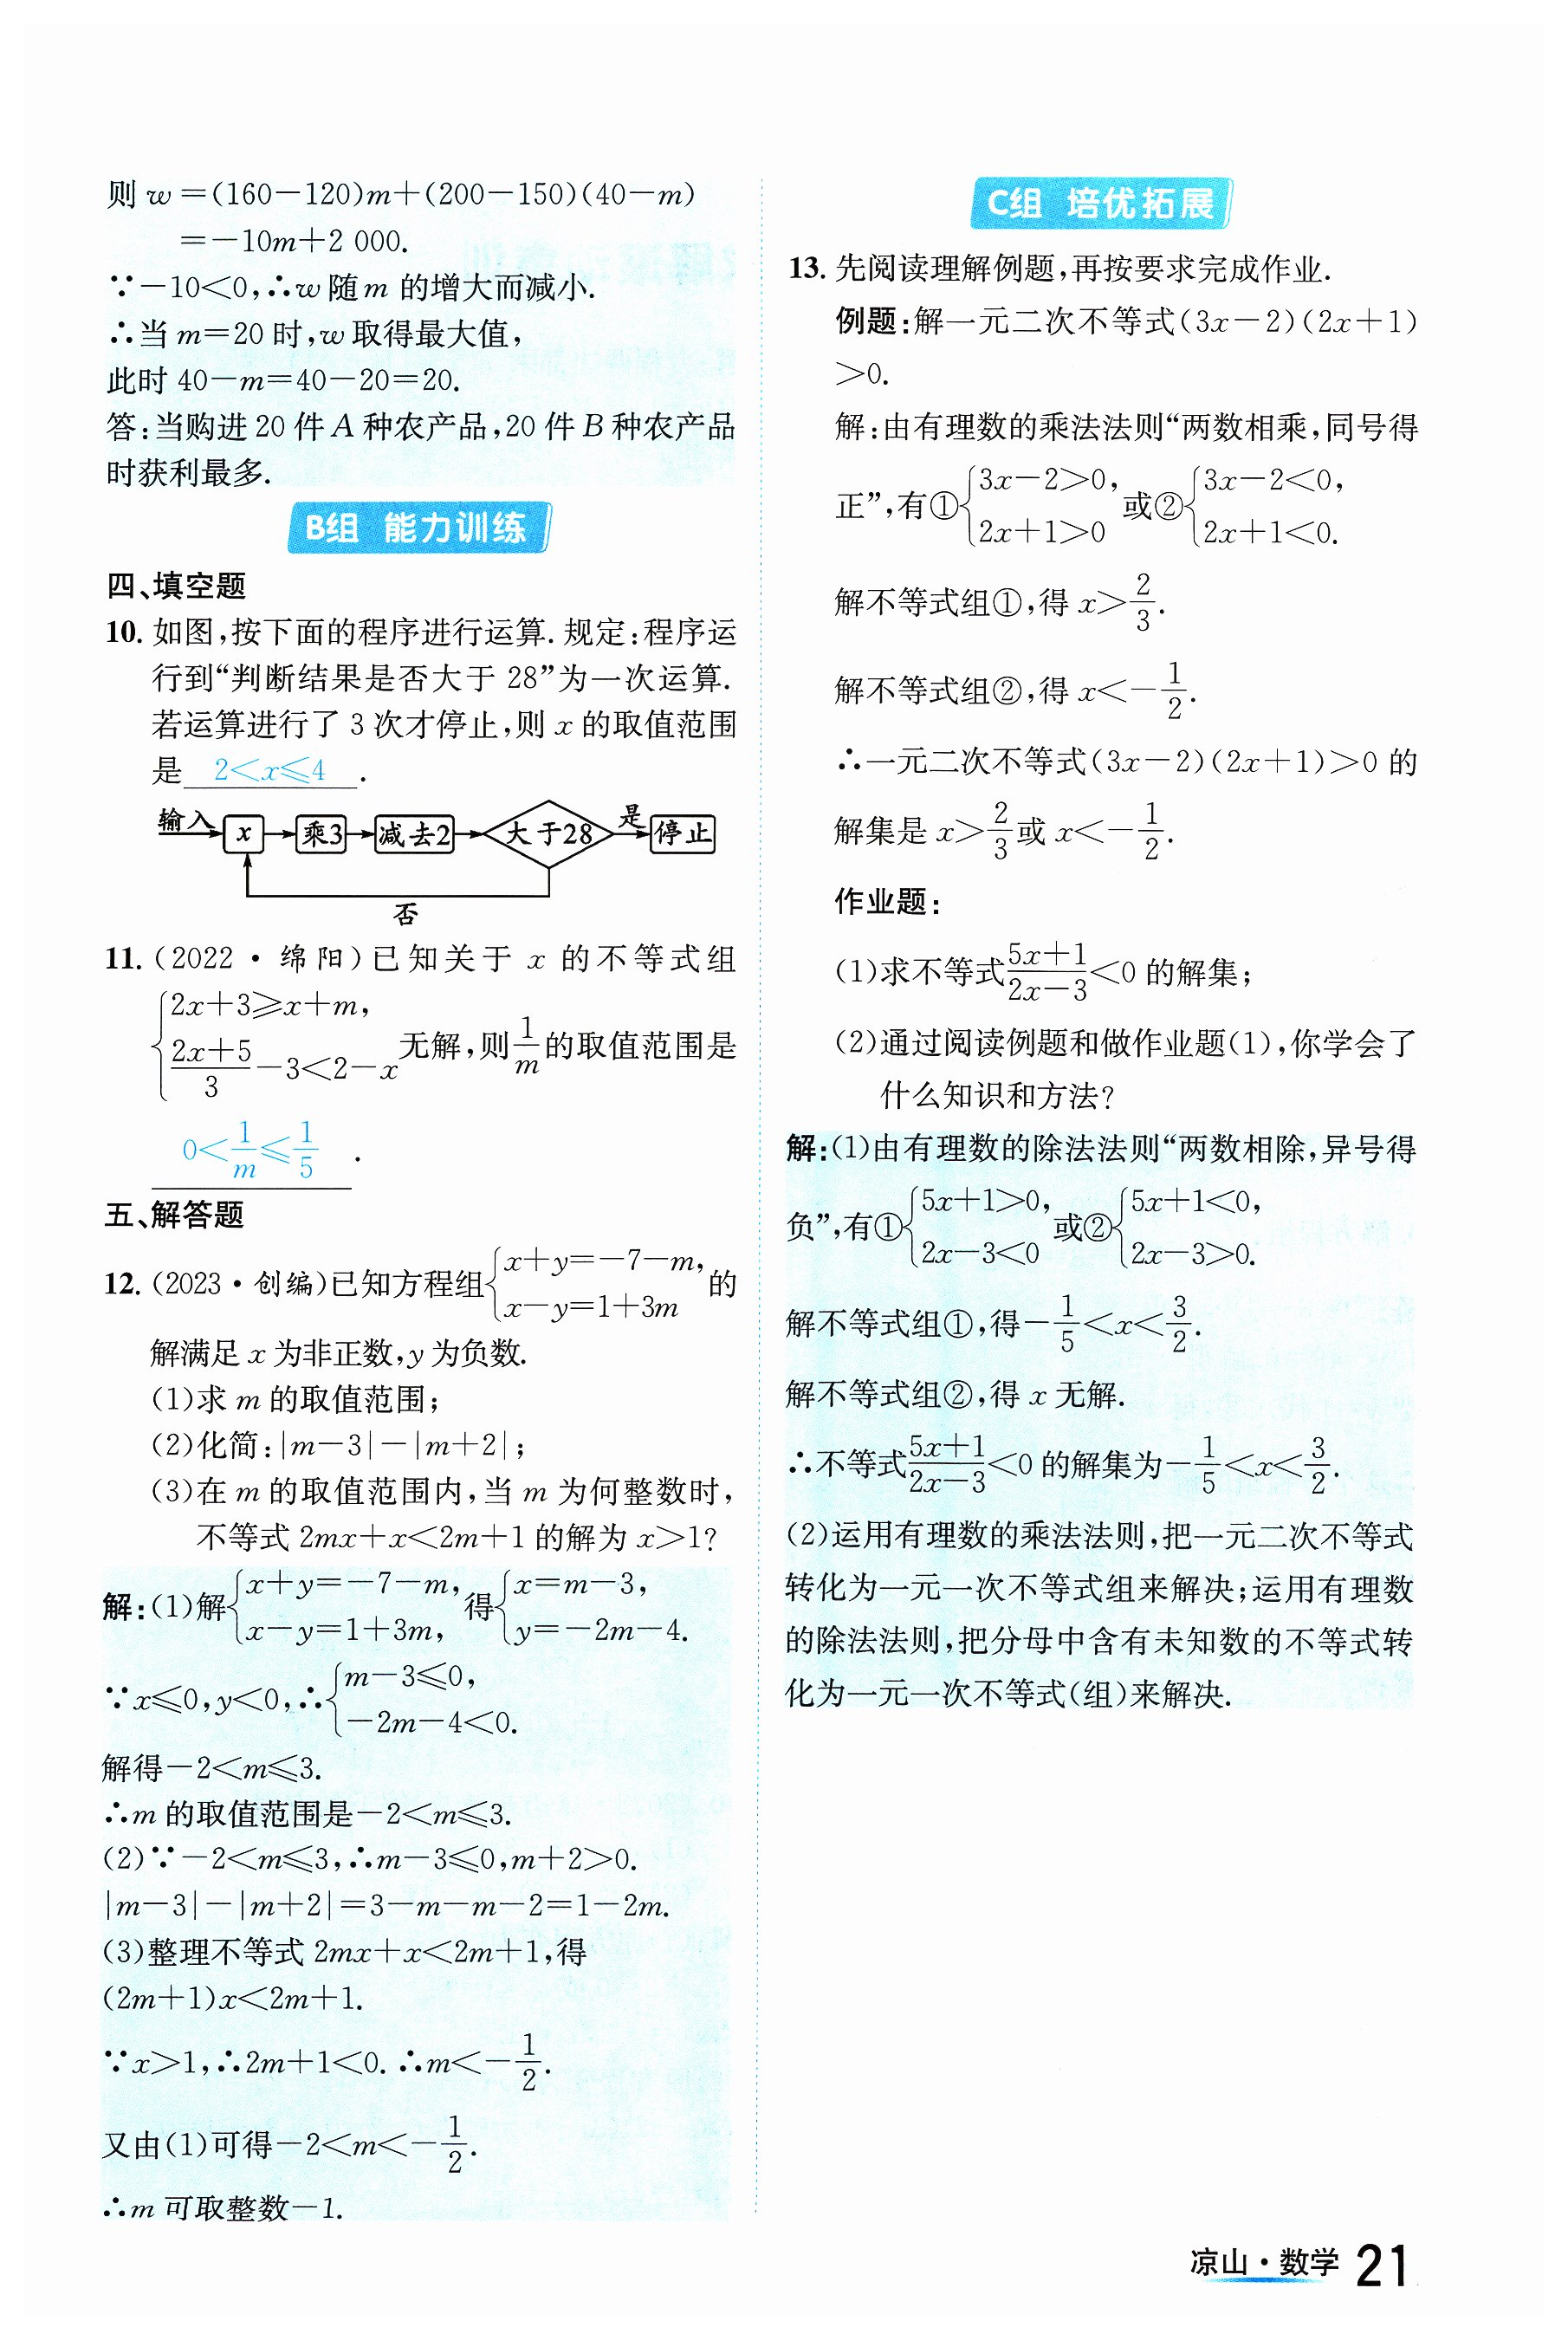 则 w=(160-120)m+(200-150)(40-m)
=-10m+2 000.
∵-10<0,∴w随m 的增大而减小.
∴当 m=20 时,w取得最大值,
此时 40-m=40-20=20.
答:当购进 20 件 A 种农产品,20 件 B 种农产品
时获利最多.
B组 能力训练
四、填空题
10. 如图,按下面的程序进行运算. 规定:程序运
行到“判断结果是否大于 28”为一次运算.
若运算进行了 3 次才停止,则 x 的取值范围
是 2<x≤4 .
输入 x 乘3 减去2 大于28 是 停止
否
11. (2022·绵阳)已知关于 x 的不等式组
{2x+3≥x+m,
(2x+5)/3-3<2-x 无解,则1/m的取值范围是
0<1/m≤1/5 .
五、解答题
12. (2023·创编)已知方程组{x+y=-7-m, x-y=1+3m 的
解满足 x 为非正数,y 为负数.
(1)求 m 的取值范围;
(2)化简:|m-3|-|m+2|;
(3)在 m 的取值范围内,当 m 为何整数时,
不等式 2mx+x<2m+1 的解为 x>1?
解:(1)解{x+y=-7-m, x-y=1+3m, 得{x=m-3, y=-2m-4.
∵x≤0,y<0,∴{m-3≤0, -2m-4<0.
解得-2<m≤3.
∴m 的取值范围是-2<m≤3.
(2)∵-2<m≤3,∴m-3≤0,m+2>0.
|m-3|-|m+2|=3-m-m-2=1-2m.
(3)整理不等式 2mx+x<2m+1,得
(2m+1)x<2m+1.
∵x>1,∴2m+1<0. ∴m<-1/2.
又由(1)可得-2<m<-1/2.
∴m 可取整数-1.
C组 培优拓展
13. 先阅读理解例题,再按要求完成作业.
例题:解一元二次不等式(3x-2)(2x+1)
>0.
解:由有理数的乘法法则“两数相乘,同号得
正”,有①{3x-2>0, 2x+1>0 或②{3x-2<0, 2x+1<0.
解不等式组①,得 x>2/3.
解不等式组②,得 x<-1/2.
∴一元二次不等式(3x-2)(2x+1)>0 的
解集是 x>2/3或 x<-1/2.
作业题:
(1)求不等式(5x+1)/(2x-3)<0 的解集;
(2)通过阅读例题和做作业题(1),你学会了
什么知识和方法?
解:(1)由有理数的除法法则“两数相除,异号得
负”,有①{5x+1>0, 2x-3<0 或②{5x+1<0, 2x-3>0.
解不等式组①,得-1/5<x<3/2.
解不等式组②,得 x 无解.
∴不等式(5x+1)/(2x-3)<0 的解集为-1/5<x<3/2.
(2)运用有理数的乘法法则,把一元二次不等式
转化为一元一次不等式组来解决;运用有理数
的除法法则,把分母中含有未知数的不等式转
化为一元一次不等式(组)来解决.
凉山·数学 21